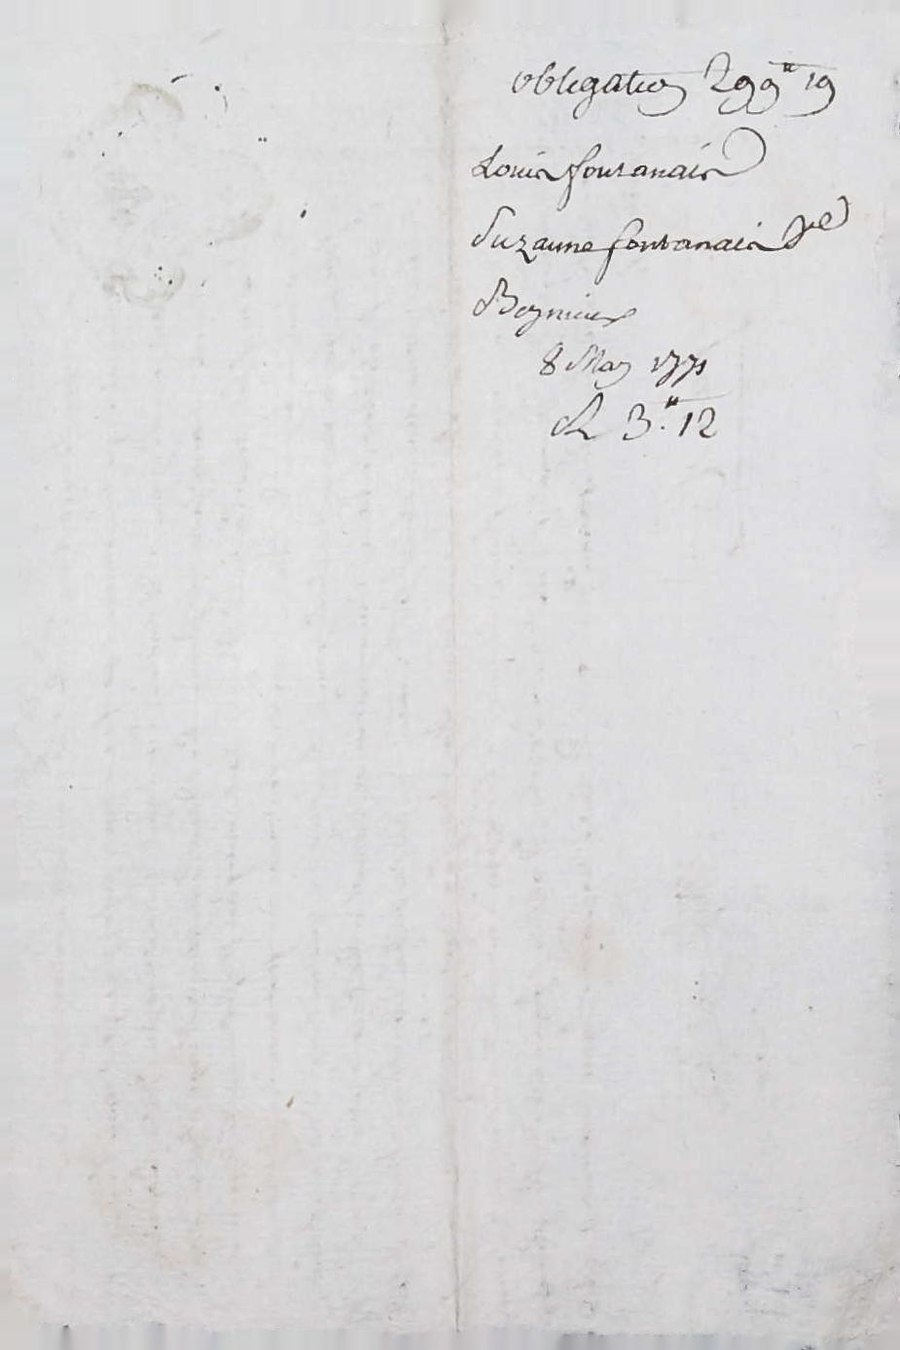 obligation 299# 19
Louis fontanais
Suzanne fontanais Ve
Beynieux
8 May 1771
R 3# 12